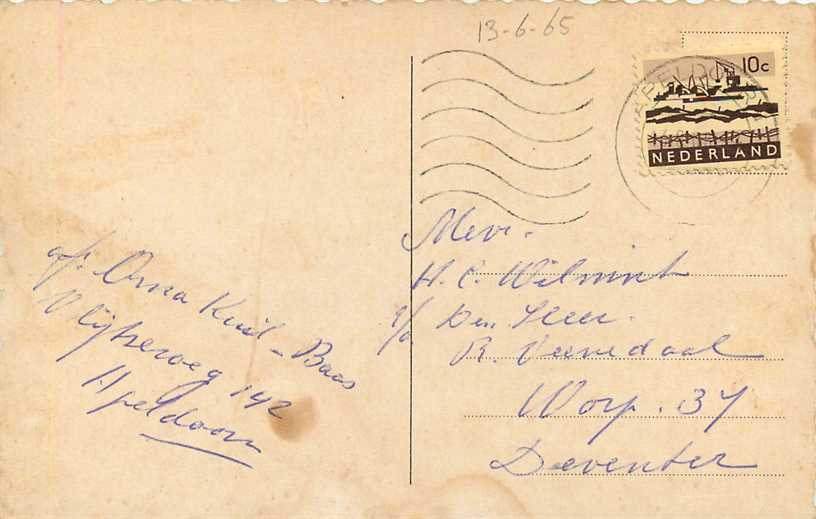 13-6-65
10c
NEDERLAND
Mevr.
H. C. Wilmink
p/a Den Heer.
R. Veenedaal
Worp. 37
Deventer
af: Oma Kuil - Baas
142
Apeldoorn